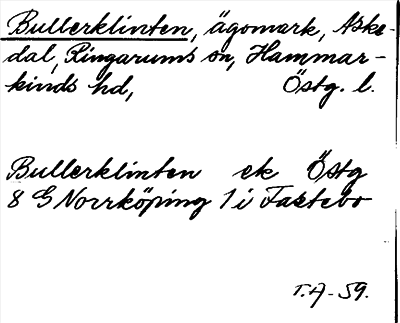 Bullerklinten, ägomark, Aske-
dal, Ringarums sn, Hammar-
kinds hd, Östg. l.
Bullerklinten ek Östg
8 G Norrköping 1 i Fastebo
T.A-59.